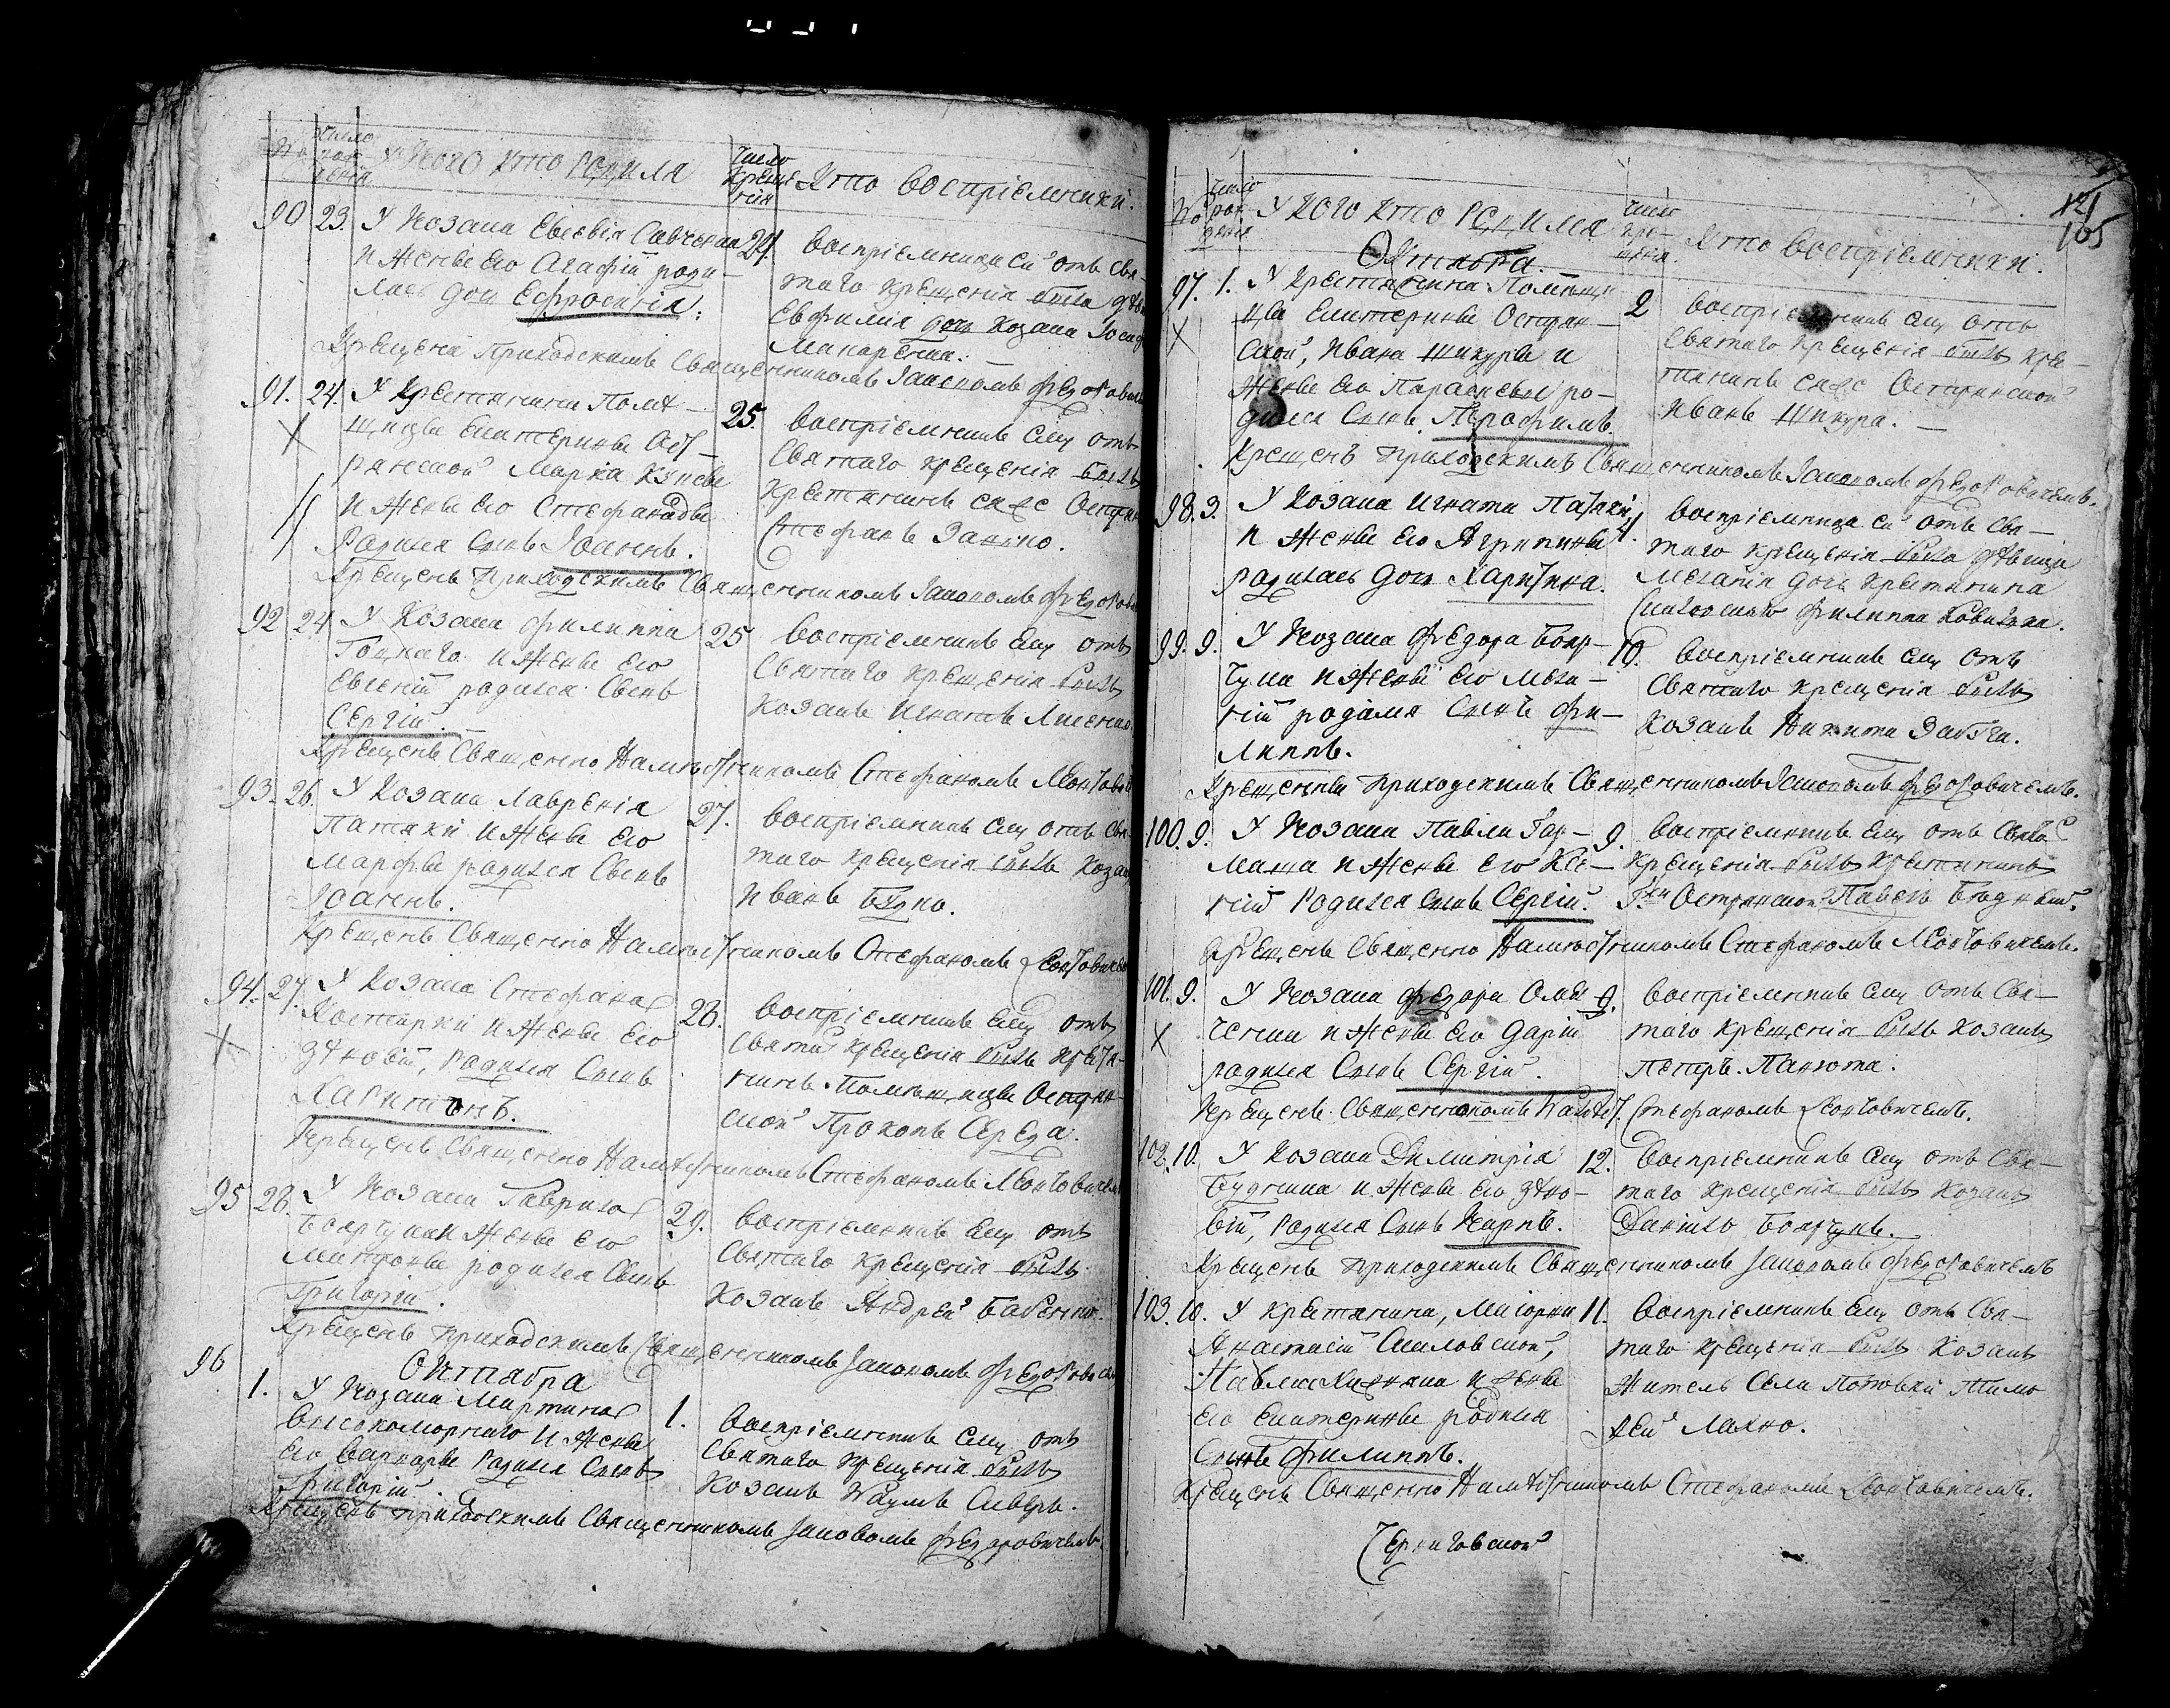 No
число рождения
У кого кто родился
число крещения
Кто воспріемники.
90 23. У козака Евсевія Савченка
и женѣ его Агафіи роди-
лась дочь Ефросинія.
24. Воспріемница ей отъ Свя-
таго крещенія была дѣви
Евфимія дочь козака
Макаренка.
Крещена Приходскимъ Священникомъ Іаковомъ Федоров
91. 24. У Крестянина Помѣ-
щицы Екатерины Ост-
рянской Марка
и женѣ его Стефаниды
Родился Сынъ Іоаннъ.
25. Воспріемникъ ему отъ
Святаго крещенія былъ
Крестянинъ
Стефанъ Заико.
Крещенъ Приходскимъ Священникомъ Іаковомъ Федоров
92 24 У Козака Филиппа
Гоцкаго и женѣ его
Евгеніи родился Сынъ
Сергій.
25 Воспріемникъ ему отъ
Святаго крещенія былъ
Козакъ Игнатъ Лисенко.
Крещенъ Священно Намѣстникомъ Стефаномъ Леонтов
93. 26. У Козака Лаврентія
Патяки и женѣ его
Марфѣ родился Сынъ
Іоаннъ.
27. Воспріемникъ ему отъ Свя-
таго крещенія былъ Козак
Иванъ
Крещенъ Священно Намѣстникомъ Стефаномъ Леонтовиче
94. 27. У Козака Стефана
Костирки и женѣ его
Зѣновіи, Родился Сынъ
Харитонъ.
28. Воспріемникъ ему отъ
Святаг крещенія былъ креста-
нинъ Помѣщицы Острян-
ской Прокопъ Середа.
Крещенъ Священно Намѣстникомъ Стефаномъ Леонтовичем
95 28. У Козака Гаврила
Боярчука и женѣ его
Матронѣ родился Сынъ
Григорій.
29. Воспріемникъ ему отъ
Святаго Крещенія былъ
Козакъ Андрей Бабенко.
Крещенъ Приходскимъ Священникомъ Іаковомъ Федорови
Октября
96 1. У Козака Мартина
Високоморнаго и женѣ
его Варварѣ Родился Сынъ
Григорій.
1. Воспріемникъ ему отъ
Святаго крещенія былъ
Козакъ Наумъ Сиверъ.
Крещенъ приходскимъ Священникомъ Іаковомъ Федоровичемъ
121
165
No
число рождения
У кого кто родился
число крещения
Кто Воспріемники.
Октября.
97. 1. У Крестянина Помѣщи-
цы Екатерины Острян-
ской, Ивана Шикуры и
женѣ его Параскевы ро-
дился Сынъ
2 Воспріемникъ ему отъ
Святаго крещенія былъ кре-
стянинъ Острянской
Иванъ Шикура.
Крещенъ Приходскимъ Священникомъ Іаковомъ Федоровичемъ.
98. 3. У Козака Игната Патяки
и женѣ его Агрипинѣ
родилась дочь Харитина.
4. Воспріемница ей отъ Свя-
таго крещенія была дѣвица
Меланія дочь крестянина
Филиппа
99. 9. У Козака Федора Бояр-
чука и женѣ его Мела-
ніи родился Сынъ Фи-
липпъ.
10. Воспріемникъ ему отъ
Святаго крещенія былъ
Козакъ Никита
Крещенъ Приходскимъ Священникомъ Іаковомъ Федоровичемъ.
100. 9. У Козака Павла Гар-
маша и женѣ его Ксе-
ніи Родился Сынъ Сергій.
9. Воспріемникъ ему отъ Святаг
Крещенія былъ крестянинъ
Острянской Павелъ Бѣдный.
Крещенъ Священно Намѣстникомъ Стефаномъ Леонтовичемъ.
101. 9. У Козака Федора Омел-
ченка и женѣ его Даріи
родился Сынъ Сергій.
9. Воспріемникъ ему отъ Свя-
таго крещенія былъ Козакъ
Петръ Панюта.
Крещенъ Священникомъ Намѣст. Стефаномъ Леонтовичемъ.
102. 10. У Козака Димитрія
Будника и женѣ его Зѣно-
віи, Родился Сынъ Карпъ.
12. Воспріемникъ ему отъ Свя-
таго крещенія былъ Козакъ
Даніилъ Боярчукъ.
Крещенъ Приходскимъ Священникомъ Іаковомъ Федоровичемъ
103. 10. У крестянина, Маіорки
Анастасіи Смиловской,
Павла и женѣ
его Екатеринѣ родился
Сынъ Филиппъ.
11. Воспріемникъ ему отъ Свя-
таго крещенія былъ Козакъ
житель Села Поповки Тимо
фей Махно.
Крещенъ Священно Намѣстникомъ Стефаномъ Леонтовичемъ.
Черниговской